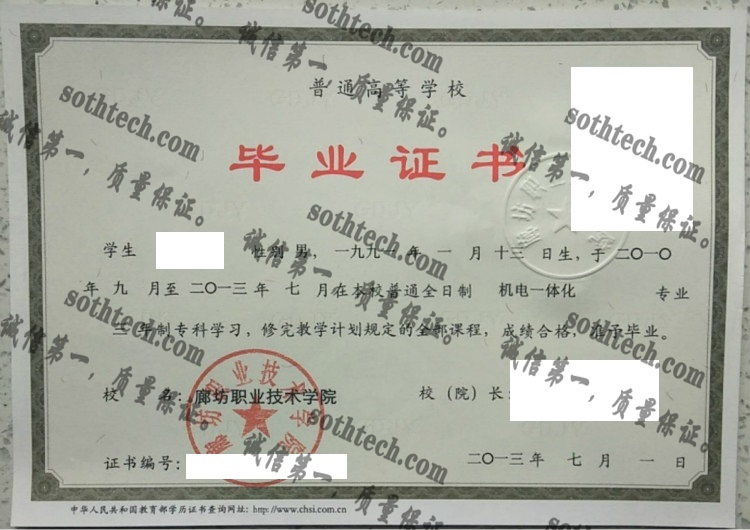 普通高等学校
毕业证书
学生 性别 男，一九九一年 一 月 十三 日生，于 二〇一〇
年 九 月至 二〇一三 年 七 月在本校普通全日制 机电一体化 专业
三 年制专科学习，修完教学计划规定的全部课程，成绩合格，准予毕业。
校 名：廊坊职业技术学院 校（院）长：
廊坊职业技术学院
证书编号： 二〇一三 年 七 月 一 日
中华人民共和国教育部学历证书查询网址：http://www.chsi.com.cn
sothtech.com
诚信第一，质量保证。
sothtech.com
诚信第一，质量保证。
sothtech.com
诚信第一，质量保证。
sothtech.com
诚信第一，质量保证。
sothtech.com
诚信第一，质量保证。
sothtech.com
诚信第一，质量保证。
sothtech.com
诚信第一，质量保证。